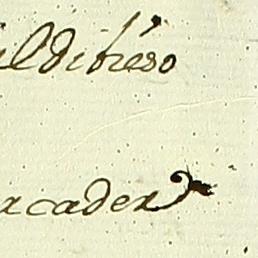 ildibieso
rcader